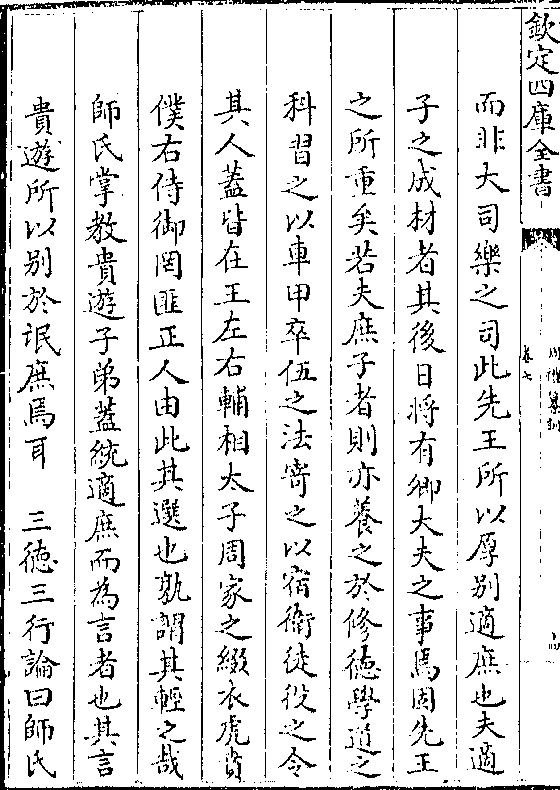 欽定四庫全書
周禮纂訓
卷七
而非大司樂之司此先王所以厚别適庶也夫適
子之成材者其後日將有卿大夫之事焉固先王
之所重矣若夫庶子者則亦養之於修徳學道之
科習之以車甲卒伍之法寄之以宿衛徒役之令
其人蓋皆在王左右輔相太子周家之綴衣虎賁
僕右侍御罔匪正人由此其選也孰謂其輕之哉
師氏掌教貴遊子弟蓋統適庶而為言者也其言
貴遊所以别於氓庶焉耳　三徳三行論曰師氏